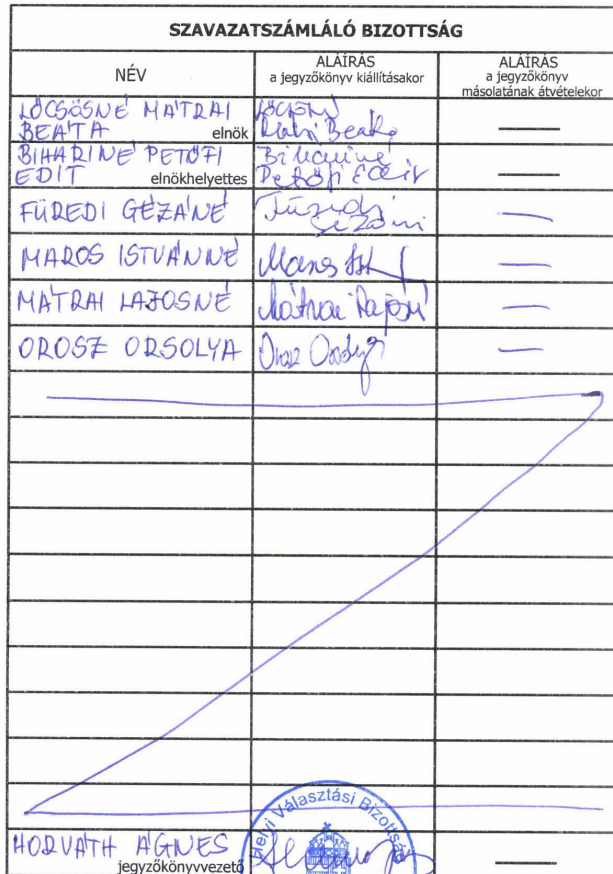 SZAVAZATSZÁMLÁLÓ BIZOTTSÁG
NÉV
ALÁÍRÁS
a jegyzőkönyv kiállításakor
ALÁÍRÁS
a jegyzőkönyv
másolatának átvételekor
LŐCSÖSNÉ MÁTRAI
BEÁTA elnök
Beáta
BIHARINÉ PETŐFI
EDIT elnökhelyettes
Bihariné
Petőfi Edit
FÜREDI GÉZÁNÉ
Füredi
Gézáné
MAROS ISTVÁNNÉ
Maros
MÁTRAI LAJOSNÉ
Mátrai Lajosné
OROSZ ORSOLYA
Orosz Orsolya
HORVÁTH ÁGNES
jegyzőkönyvvezető
Helyi Választási Bizottság